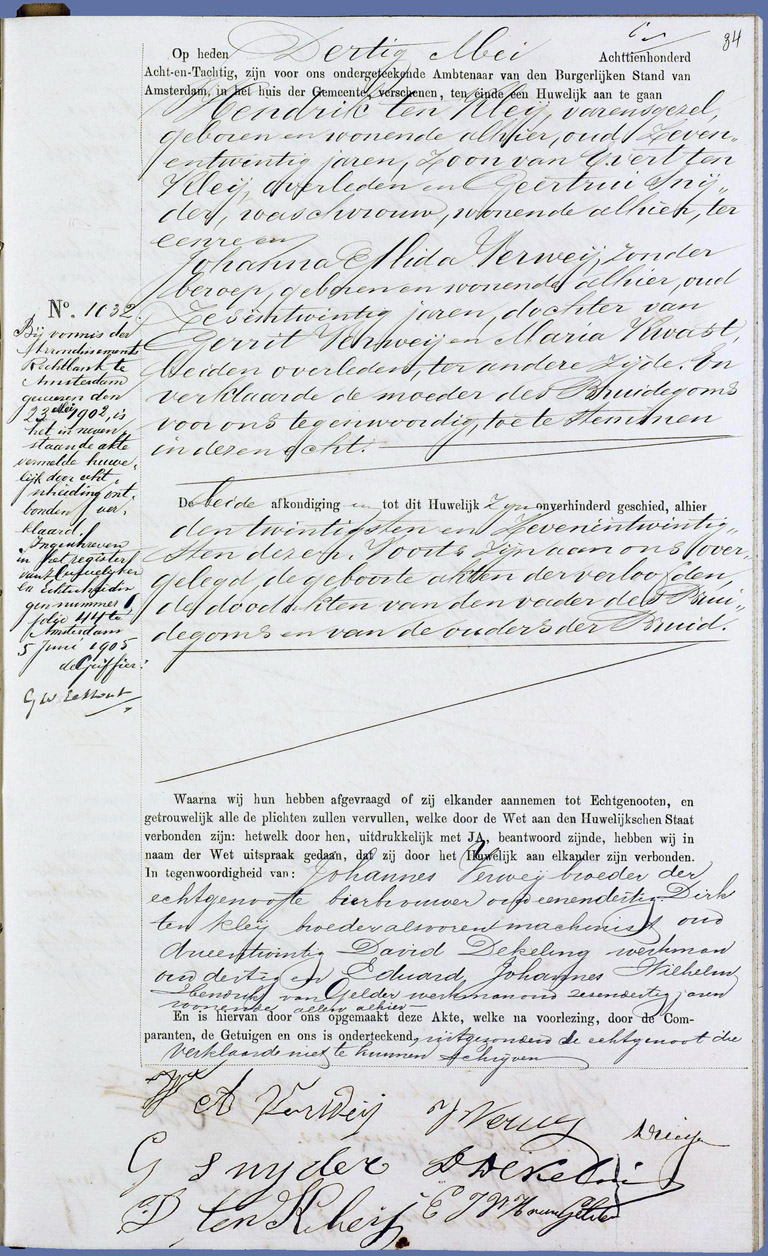 34
Op heden Dertig Mei Achttienhonderd
Acht-en-Tachtig, zijn voor ons ondergeteekende Ambtenaar van den Burgerlijken Stand van
Amsterdam, in het huis der Gemeente verschenen, ten einde een Huwelijk aan te gaan
Hendrik ten Kleij, varensgezel,
geboren en wonende alhier, oud Zeven-
entwintig jaren, Zoon van Evert ten
Kleij, overleden en Geertrui Snij-
der, waschvrouw, wonende alhier, ter
eenre en
Johanna Alida Verweij, zonder
beroep, geboren en wonende alhier, oud
Zesëntwintig jaren, dochter van
Gerrit Verweij en Maria Kwast,
beiden overleden, ter andere zijde. En
verklaarde de moeder des Bruidegoms
voor ons tegenwoordig, toe te stemmen
in dezen echt.
No. 1032.
Bij vonnis der
Arrondissements
Rechtbank te
Amsterdam
gewezen den
23 Mei 1902, is
het in neven-
staande akte
vermelde huwe-
lijk door echt-
scheiding ont-
bonden ver-
klaard.
Ingeschreven
in het register
van Huwelijken
en echtscheidin
gen nummer 1
folio 44 te
Amsterdam
5 Juni 1905
de Griffier:
De beide afkondigingen tot dit Huwelijk zijn onverhinderd geschied, alhier
den twintigsten en Zevenëntwintig-
sten dezer. Voorts zijn aan ons over-
gelegd, de geboorte akten der verloofden,
de doodakten van den vader des Brui-
degoms en van de ouders der Bruid.
Waarna wij hun hebben afgevraagd of zij elkander aannemen tot Echtgenooten, en
getrouwelijk alle de plichten zullen vervullen, welke door de Wet aan den Huwelijkschen Staat
verbonden zijn: hetwelk door hen, uitdrukkelijk met JA, beantwoord zijnde, hebben wij in
naam der Wet uitspraak gedaan, dat zij door het Huwelijk aan elkander zijn verbonden.
In tegenwoordigheid van: Johannes Verweij broeder der
echtgenoote bierbrouwer oud eenendertig Dirk
ten Kleij broeder alsvoren machinist oud
drieentwintig David Dekeling werkman
oud dertig en Eduard Johannes Wilhelm
Hendrik van Gelder werkman oud zesendertig jaren
wonende allen alhier
En is hiervan door ons opgemaakt deze Akte, welke na voorlezing, door de Com-
paranten, de Getuigen en ons is onderteekend, uitgezonderd de echtgenoot die
verklaarde niet te kunnen schrijven
J A Verweij J Verweij
G Snyder D Dekeling
D ten Kleij E J W H van Gelder